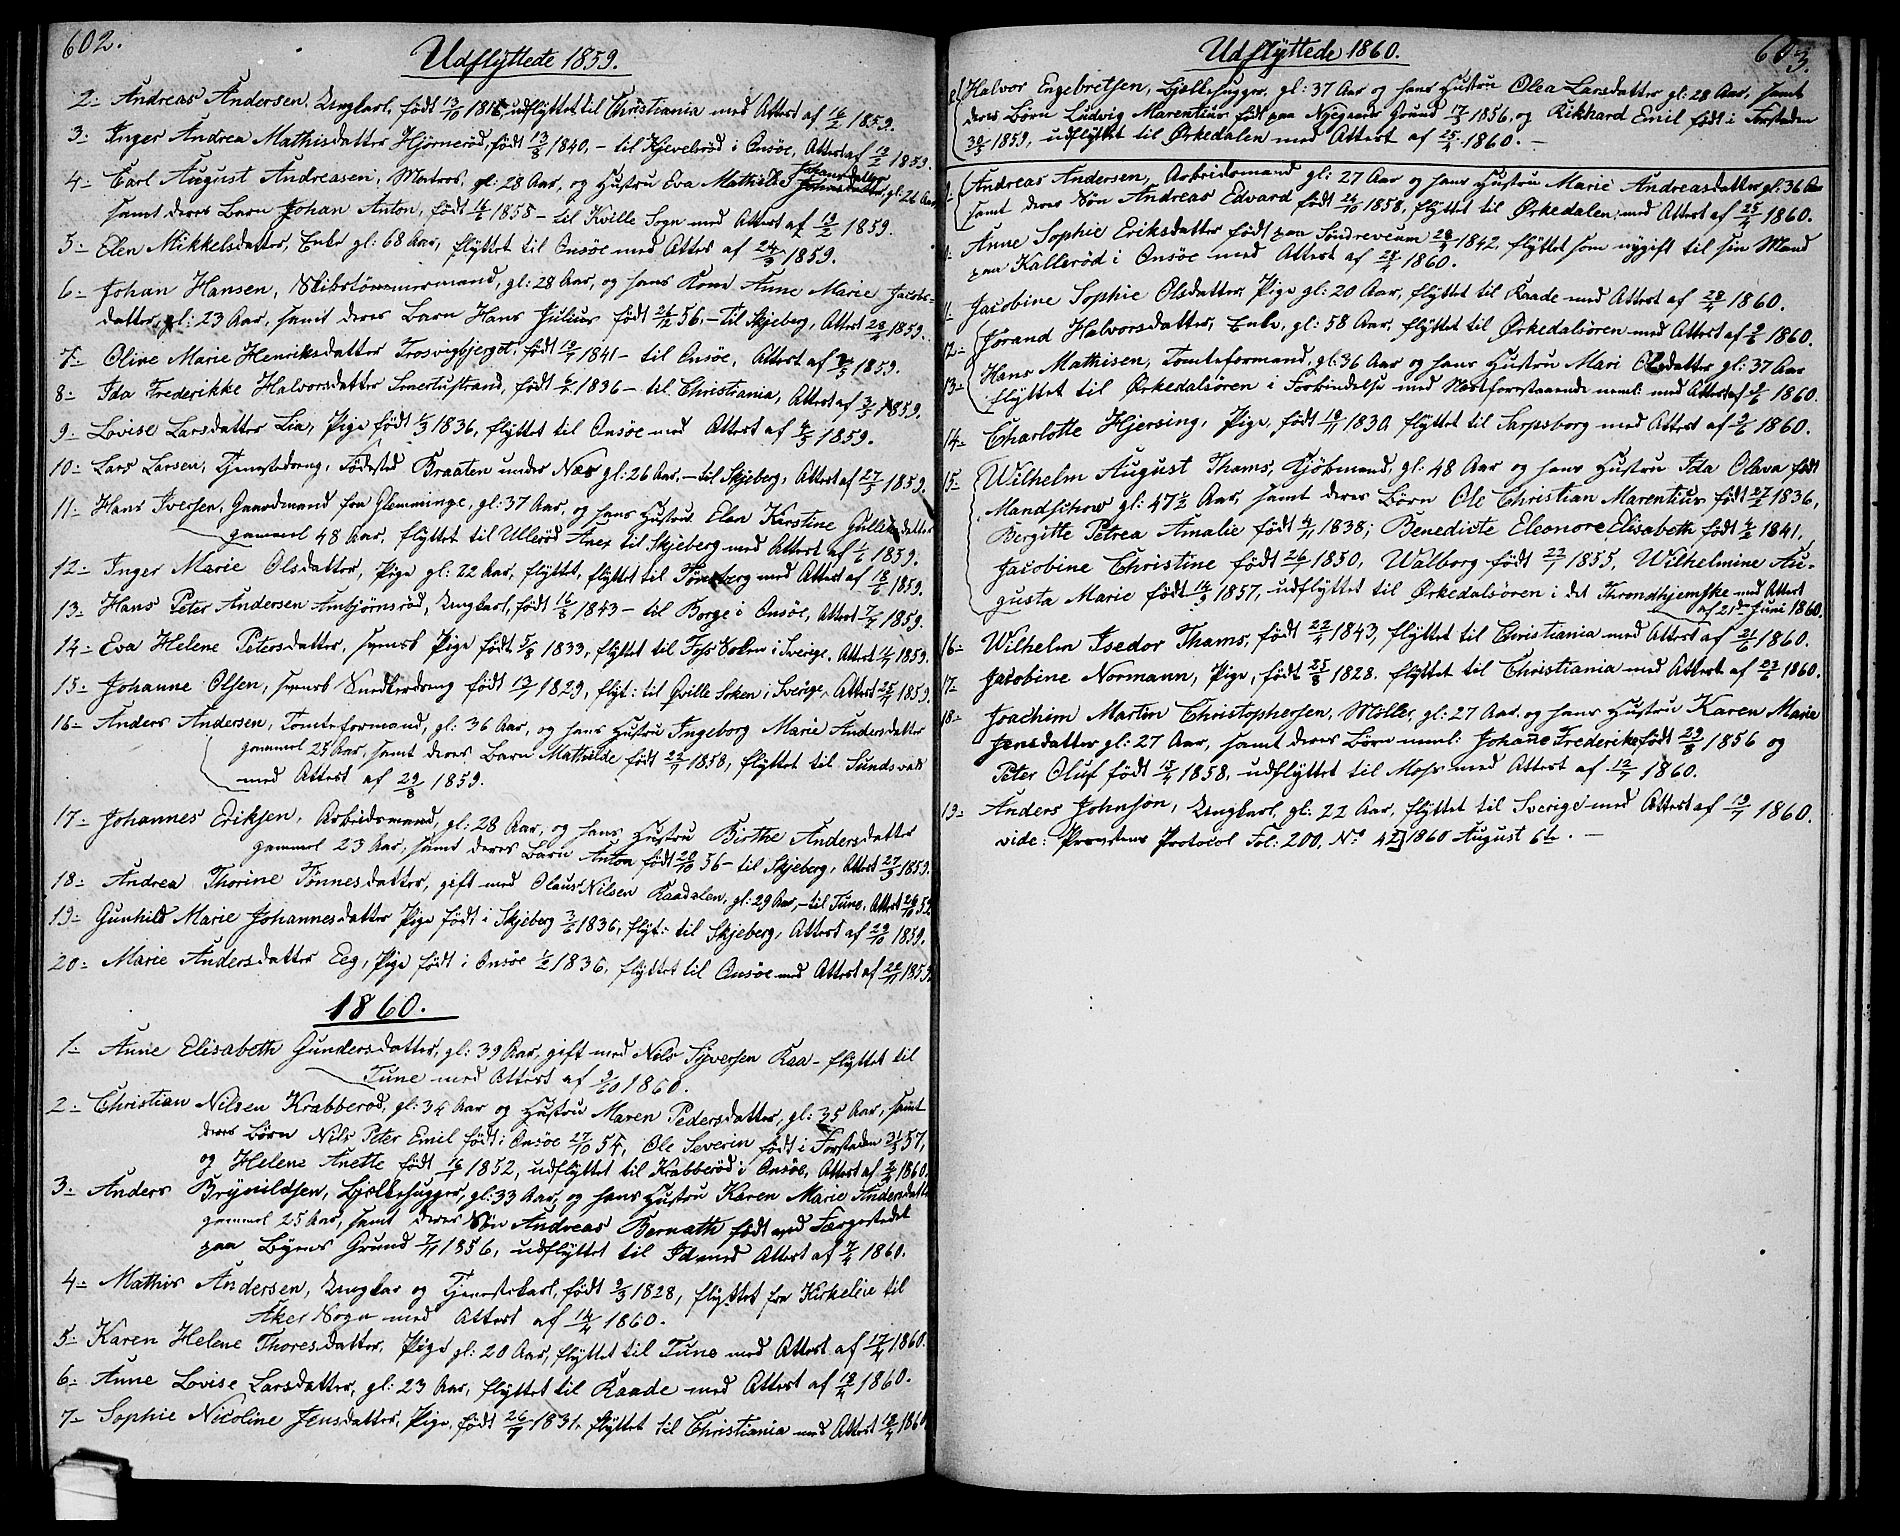 602.
Udflyttede 1859.
2. Andreas Andersen, Ungkarl, født 13/10 udflyttet til Christiania med Attest af 16/2 1859.
3. Inger Andrea Mathisdatter Hjørnerød, født 13/8 1840, - til Kjevelsrød i Onsøe, Attest af 12/2 1859.
4. Carl August Andreasen, Matros, gl: 28 Aar, og Hustru Eva Mathilde Johansdatter gl: 26 Aar
samt deres Barn Johan Anton, født 1858 - til Kville Sogn med Attest af 19/2 1859.
5. Elen Mikkelsdatter, Enke gl: 68 Aar, flyttet til Onsøe med Attest af 24/3 1859.
6. Johan Hansen, Skibstømmermand, gl: 28 Aar, og hans Kone Anne Marie Jacobs-
datter, gl: 23 Aar, samt deres Barn Hans Julius født 26/12 56, - til Skjeberg, Attest 28/4 1859.
7. Oline Marie Henriksdatter Trosvigbjerget, født 1841 - til Onsøe, Attest af 1859.
8. Ida Frederikke Halvorsdatter Smertustrand, født 1836 - til Christiania, Attest af 3/5 1859.
9. Lovise Larsdatter Lia, Pige født 1836, flyttet til Onsøe med Attest af 1859.
10. Lars Larsen, Tjenestedreng, Fødested Braaten under Næs gl: 26 Aar, - til Skjeberg, Attest af 27/5 1859.
11. Hans Iversen, Gaardmand fra Glemminge, gl: 37 Aar, og hans Hustru Elen Kirstine Gulliksdatter
gammel 48 Aar, flyttet til Ullerød Anex til Skjeberg med Attest af 1/6 1859.
12. Inger Marie Olsdatter, Pige gl: 22 Aar, flyttet, flyttet til Tønsberg med Attest af 18/6 1859.
13. Hans Peter Andersen Ambjørnsrød, Ungkarl, født 16/8 1843 - til Borge i Onsøe, Attest 7/7 1859.
14. Eva Helene Petersdatter, svensk Pige født 5/8 1833, flyttet til Foss Soken i Sverige, Attest 1859.
15. Johanne Olsen, svensk Snedkerdreng født 13/7 1829, flyt: til Qville Soken i Sverige, Attest 25/7 1859.
16. Anders Andersen, Tomteformand, gl: 36 Aar, og hans Hustru Ingeborg Marie Andersdatter
gammel 28 Aar, samt deres Barn Mathilde født 22/7 1858, flyttet til Sundsvall
med Attest af 29/8 1859.
17. Johannes Eriksen, Arbeidsmand, gl: 28 Aar, og hans Hustru Birthe Andersdatter
gammel 23 Aar, samt deres Barn Anton født 20/10 56 - til Skjeberg, Attest 27/9 1859.
18. Andrea Thorine Tønnesdatter, gift med Olaus Nilsen Raadalen, gl: 29 Aar, - til Tune, Attest 26/10 59
19. Gunhild Marie Johannesdatter Pige født i Skjeberg 3/6 1836, flyt: til Skjeberg, Attest af 29/10 1859.
20. Marie Andersdatter Eeg, Pige født i Onsøe 1/2 1836, flyttet til Onsøe med Attest af 22/11 1859.
1860.
1. Anne Elisabeth Gundersdatter, gl: 39 Aar, gift med Nils Syversen Raa - flyttet til
Tune med Attest af 1860.
2. Christian Nilsen Krabberød, gl: 34 Aar og Hustru Maren Pedersdatter, gl: 35 Aar, samt
deres Børn Nils Peter Emil født i Onsøe 27/10 54, Ole Severin født i Forstaden 57,
og Helene Anette født 16/7 1852, udflyttet til Krabberød i Onsøe, Attest af 1860.
3. Anders Brynildsen, Bjelkehugger, gl: 33 Aar, og hans Hustru Karen Marie Andersdatter
gammel 25 Aar, samt deres Søn Andreas Bernath født ved Færgestedet
paa Byens Grund 7/11 1856, udflyttet til Id med Attest af 7/4 1860.
4. Mathis Andersen, Ungkar og Tjenestekarl, født 9/3 1828, flyttet fra Kirkelie til
Aker Sogn med Attest af 14/4 1860.
5. Karen Helene Thoresdatter, Pige gl: 20 Aar, flyttet til Tune med Attest af 17/4 1860.
6. Anne Lovise Larsdatter, gl: 23 Aar, flyttet til Raade med Attest af 18/4 1860.
7. Sophie Nicoline Jensdatter, Pige, født 26/9 1831, flyttet til Christiania med Attest 18/4 1860
Udflyttede 1860.
603.
8. Halvor Engebretsen, Bjelkehugger, gl: 37 Aar og hans Hustru Olea Larsdatter gl: 28 Aar, samt
deres Børn Ludvig Marentius født paa Nygaards Grund 17/3 1856, og Rikhard Emil født i Forstaden
30/3 1859, udflyttet til Ørkedalen med Attest af 25/4 1860. -
9. Andreas Andersen, Arbeidsmand gl: 27 Aar og hans Hustru Marie Andreasdatter gl: 36 Aar
samt deres Søn Andreas Edvard født 24/10 1858, flyttet til Ørkedalen med Attest af 25/4 1860.
Anne Sophie Eriksdatter født paa Søndreveum 28/9 1842, flyttet som nygift til sin Mand
paa Kallerød i Onsøe med Attest af 28/4 1860.
11. Jacobine Sophie Olsdatter, Pige gl: 20 Aar, flyttet til Raade med Attest af 28/4 1860.
12. Jorand Halvorsdatter, Enke, gl: 58 Aar, flyttet til Ørkedalsøren med Attest af 1860.
13. Hans Mathisen, Tomteformand, gl: 36 Aar og hans Hustru Mari Olsdatter gl: 37 Aar
flyttet til Ørkedalsøren i Forbindelse med Næstforestaaende nemli: med Attest af 1860.
14. Charlotte Hjersing, Pige, født 19/11 1830 flyttet til Sarpsborg med Attest af 9/6 1860.
15. Wilhelm August Thams, Kjøbmand, gl: 48 Aar og hans Hustru Ida Olava født
Mandschow gl: 47½ Aar, samt deres Børn Ole Christian Marentius født 27/2 1836,
Bergitte Petrea Amalie født 9/11 1838; Benedicte Eleonore Elisabeth født 1841,
Jacobine Christine født 26/7 1850, Walborg født 22/7 1855, Wilhelmine Au-
gusta Marie født 14/9 1857, udflyttet til Ørkedalsøren i det Throndhjemske med Attest
af 21de Juni 1860.
16. Wilhelm Isedor Thams, født 22/5 1843, flyttet til Christiania med Attest af 21/6 1860.
17. Jacobine Normann, Pige, født 25/8 1828. flyttet til Christiania med Attest af 27/6 1860.
18. Joachim Martin Christophersen, Møller, gl: 27 Aar, og hans Hustru Karen Marie
Jensdatter gl: 27 Aar, samt deres Børn nemli: Johanne Frederike født 29/8 1856 og
Peter Oluf født 15/4 1858, udflyttet til Moss med Attest af 12/7 1860.
19. Anders Johnson, Ungkarl, gl: 22 Aar, flyttet til Sverige med Attest af 19/7 1860.
vide: Provstens Protocol Fol: 200, No 42] 1860 August 6te. -